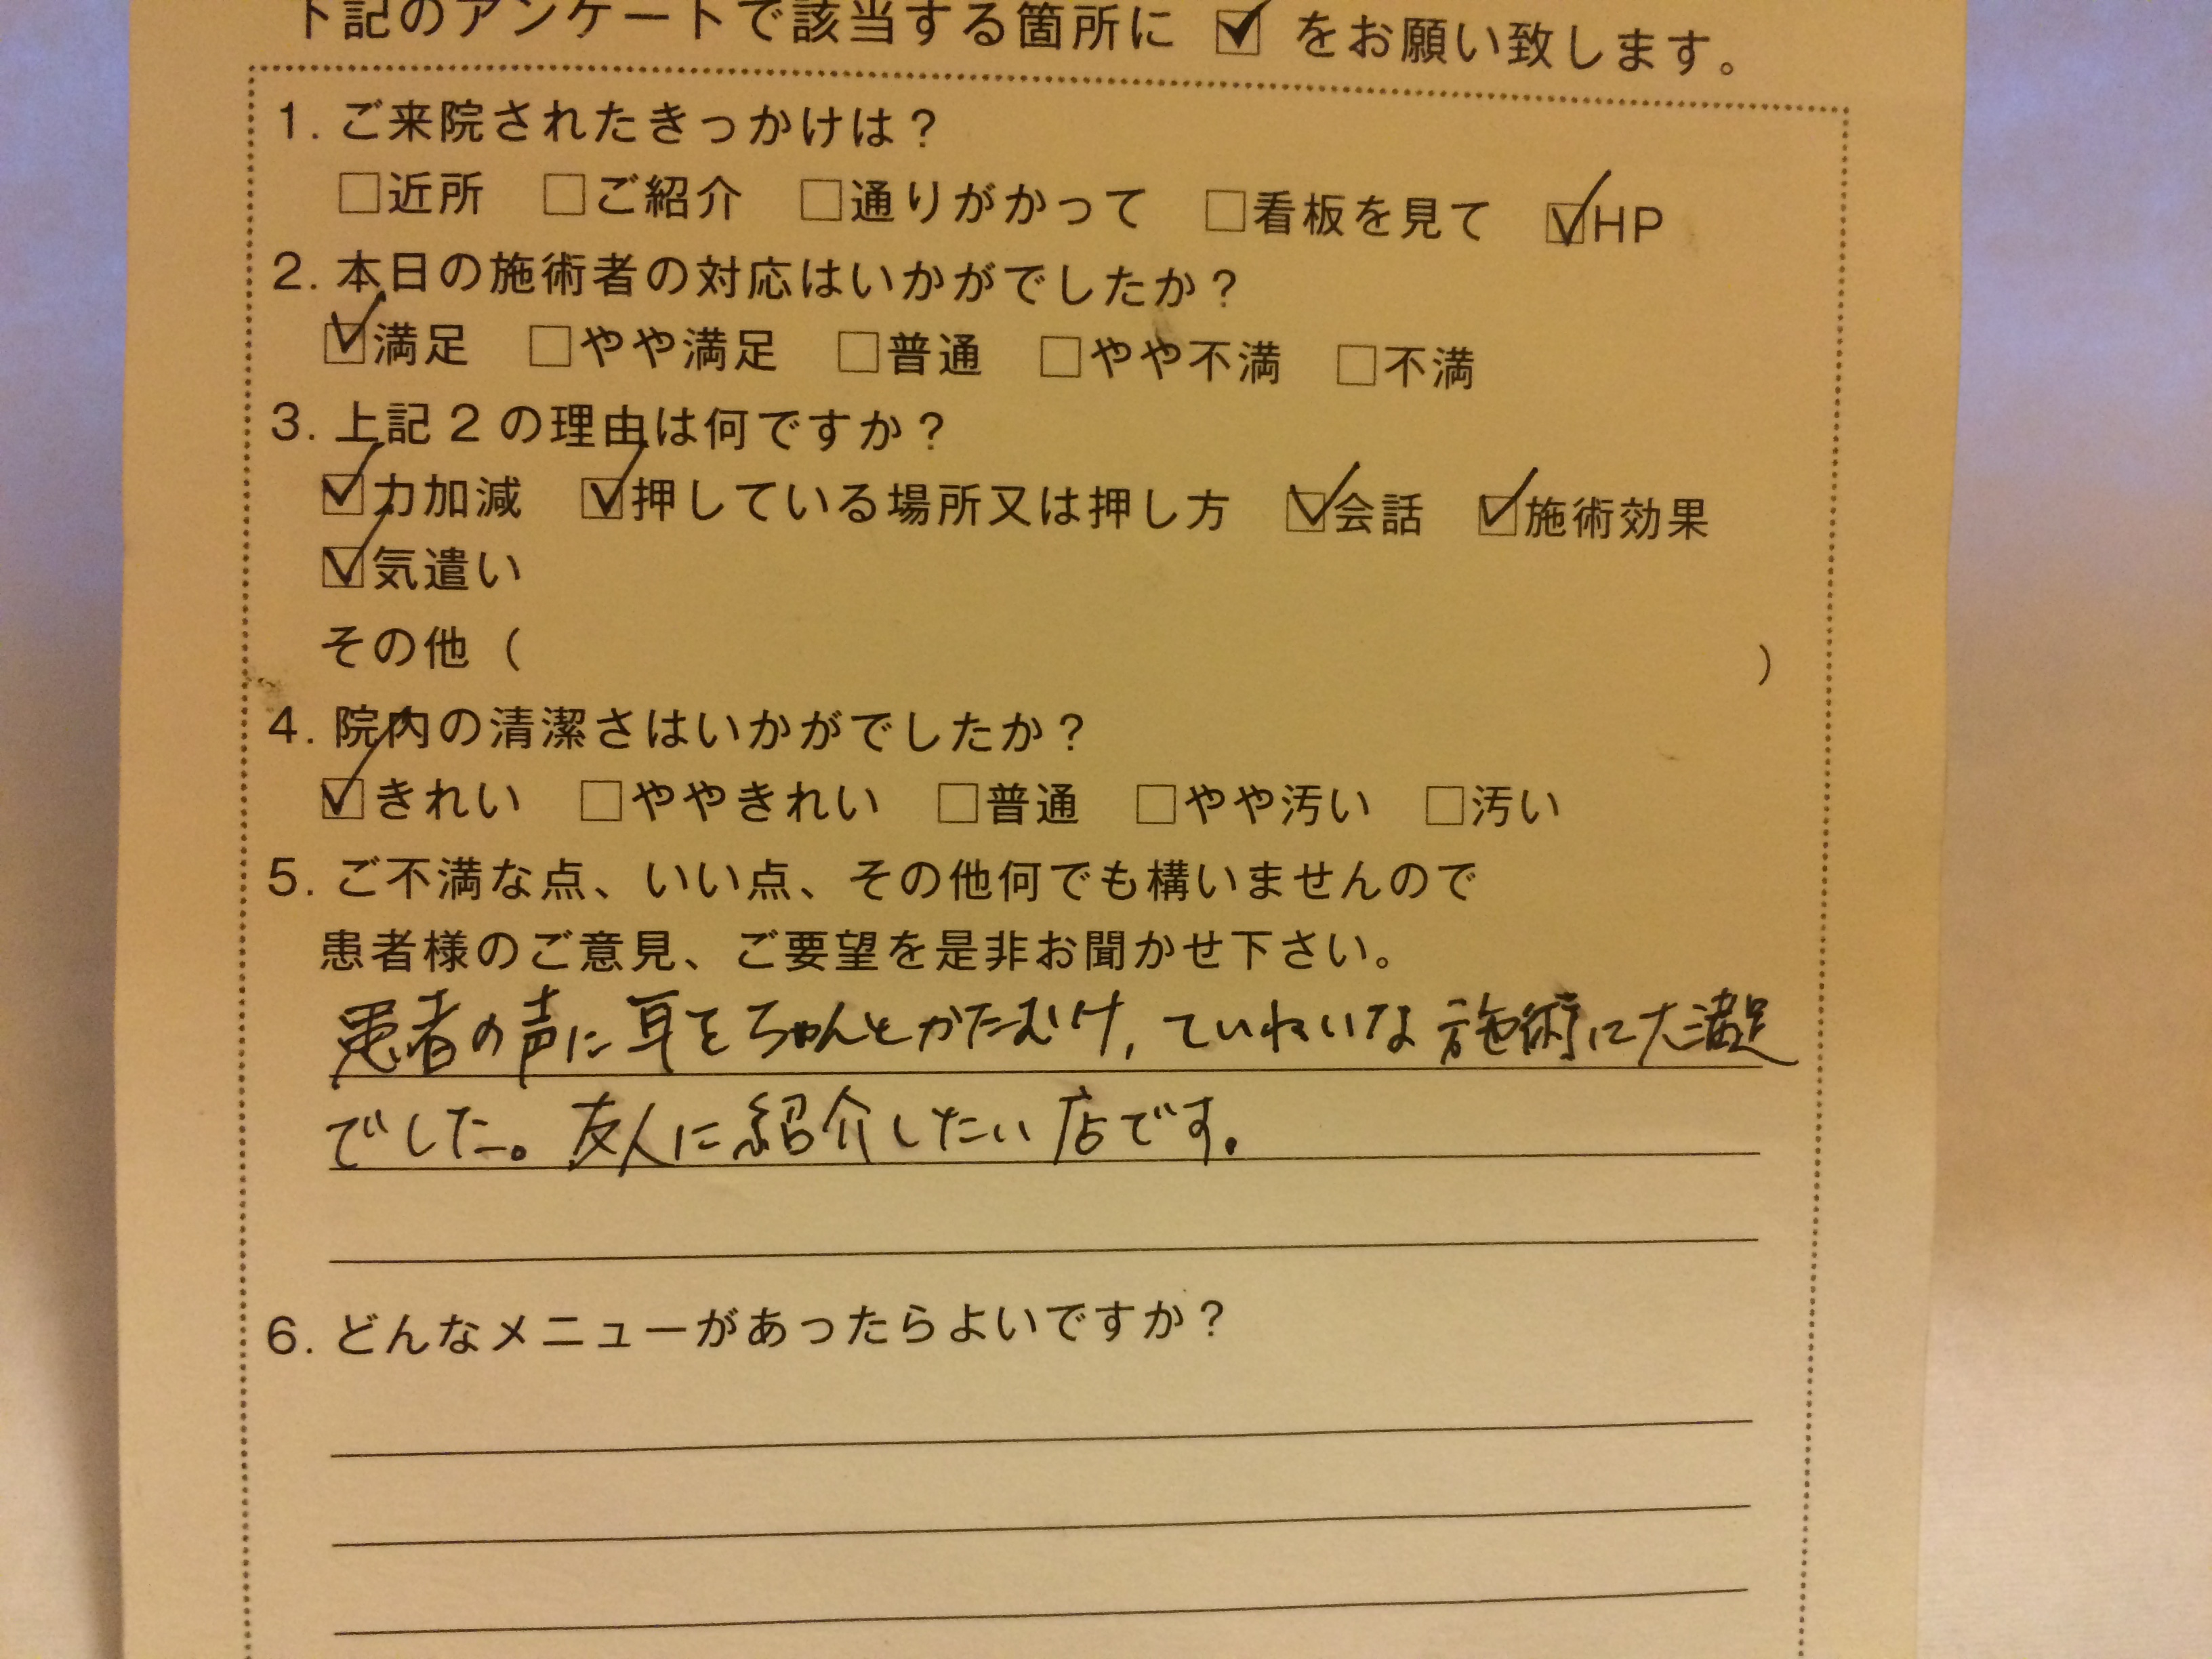 下記のアンケートで該当する箇所に ☑ をお願い致します。
1. ご来院されたきっかけは？
□近所 □ご紹介 □通りがかって □看板を見て ☑HP
2. 本日の施術者の対応はいかがでしたか？
☑満足 □やや満足 □普通 □やや不満 □不満
3. 上記２の理由は何ですか？
☑力加減 ☑押している場所又は押し方 ☑会話 ☑施術効果
☑気遣い
その他（ ）
4. 院内の清潔さはいかがでしたか？
☑きれい □ややきれい □普通 □やや汚い □汚い
5. ご不満な点、いい点、その他何でも構いませんので
患者様のご意見、ご要望を是非お聞かせ下さい。
患者の声に耳をちゃんとかたむけ, ていねいな施術に大満足
でした。友人に紹介したい店です。
6. どんなメニューがあったらよいですか？